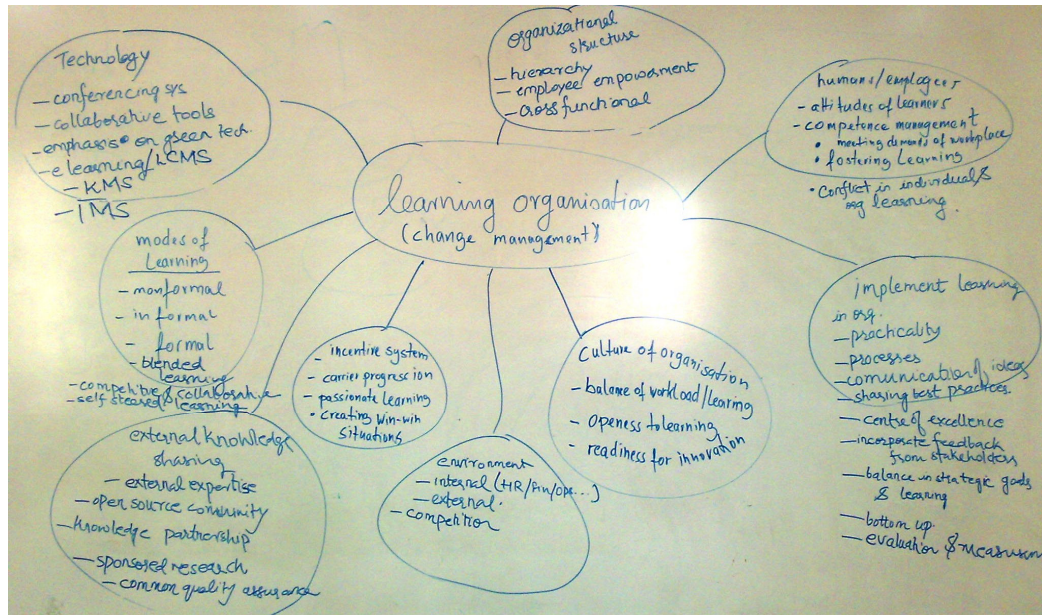 Technology
- conferencing sys
- collaborative tools
- emphasis on green tech.
- elearning/LCMS
- KMS
- IMS
organizational
structure
- hierarchy
- employee empowerment
- cross functional
humans/employees
- attitudes of learners
- competence management
• meeting demands of workplace
• fostering Learning
• Conflict in individual &
org learning.
learning organisation
(change management)
modes of
Learning
- nonformal
- informal
- formal
- blended
learning
- competitive & collaborative
- self steared learning
incentive system
- carrier progression
- passionate learning
• Creating win-win
situations
Culture of organisation
- balance of workload/learing
- Openess to learning
- readiness for innovation
implement learning
in org.
- practicality
- processes
- comunication of ideas
- sharing best practices.
- centre of excellence
- incorporate feedback
from stakeholders
- balance in strategic goals
& learning
- bottom up.
- evaluation &
external knowledge
sharing
- external expertise
- open source community
- knowledge partnership
- sponsored research
- common quality assurance
environment
- internal (HR/Fin/Ops...)
- external.
- competition